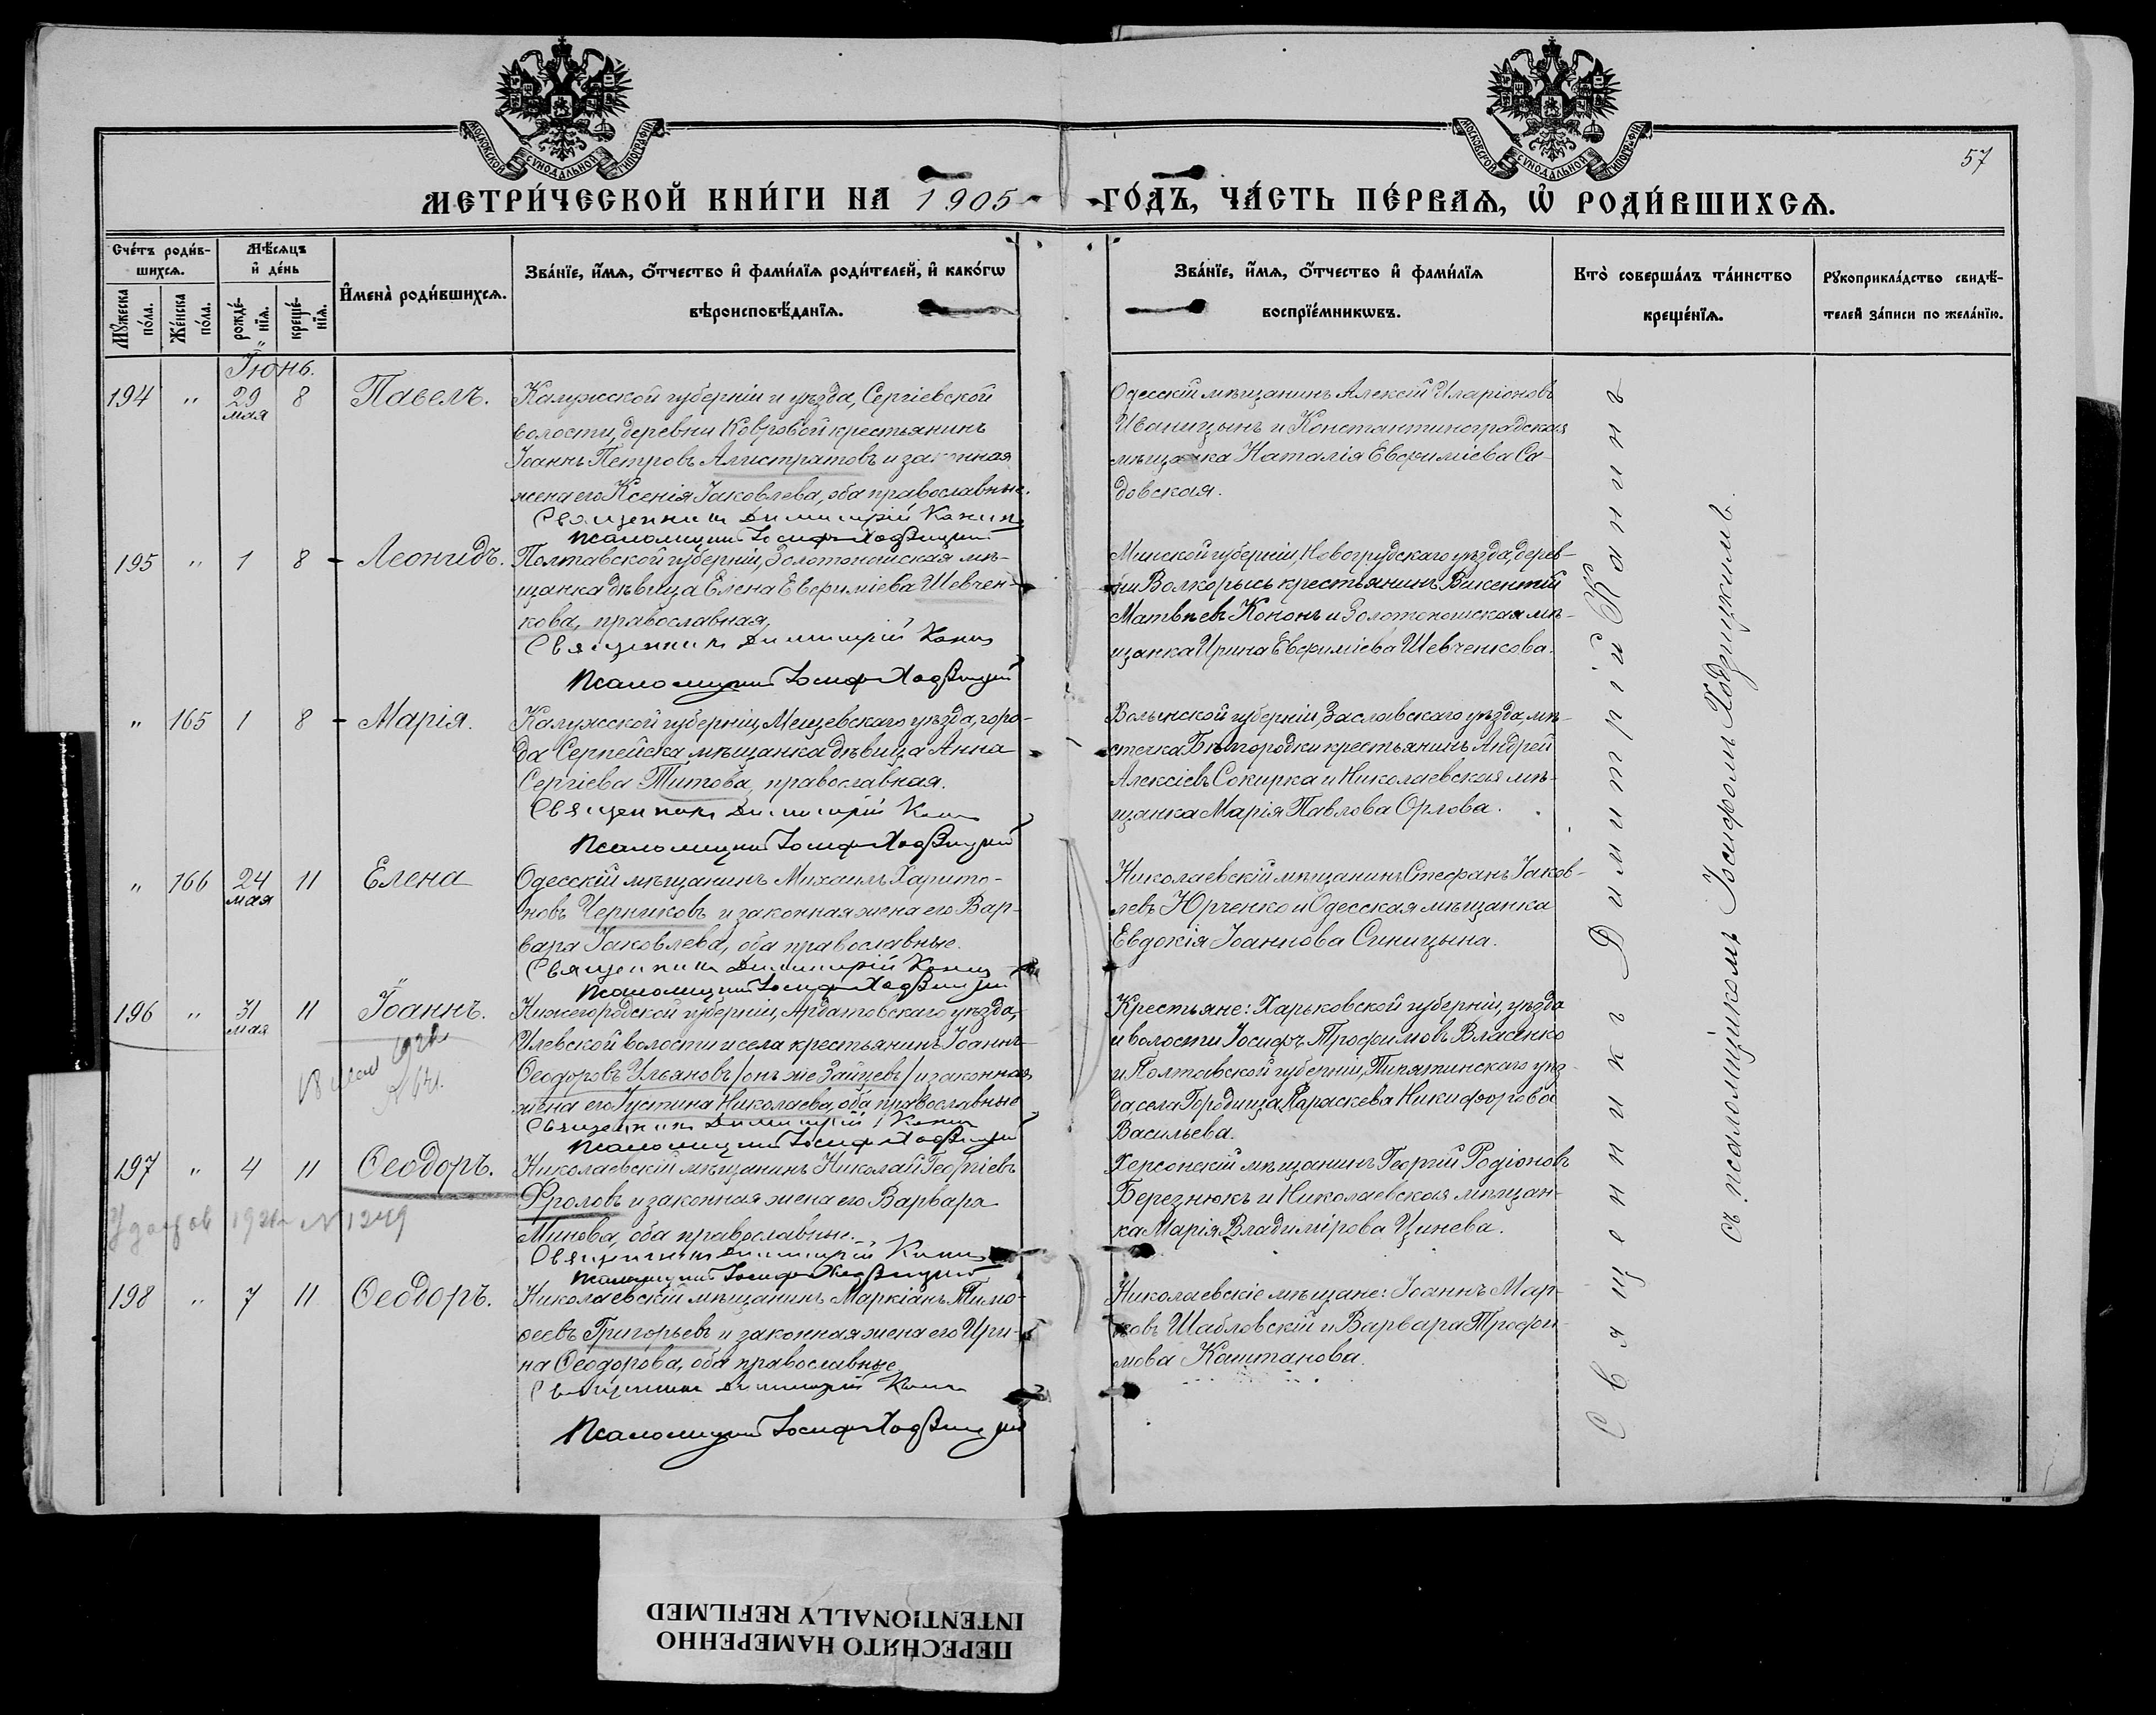 МОСКОВСКОЙ СѴНОДАЛЬНОЙ ТИПОГРАФІИ
МОСКОВСКОЙ СѴНОДАЛЬНОЙ ТИПОГРАФІИ
57
МЕТРИ́ЧЕСКОЙ КНИ́ГИ НА 1905 ГО́ДЪ, ЧА́СТЬ ПЕ́РВАѦ, Ѡ҆ РОДИ́ВШИХСѦ.
Сче́тъ роди́в-
шихсѧ.
Мꙋ́жеска по́ла.
Же́нска по́ла.
Мѣ́сѧцъ
и҆ де́нь
рожде́-
нїѧ.
креще́-
нїѧ.
И҆мена̀ роди́вшихсѧ.
Зва́нїе, и҆́мѧ, ѻ҆́тчество и҆ фами́лїѧ роди́телей, и҆ како́гѡ
вѣроисповѣ́данїѧ.
Зва́нїе, и҆́мѧ, ѻ҆́тчество и҆ фами́лїѧ
воспрїе́мникѡвъ.
Кто̀ соверша́лъ та́инство
креще́нїѧ.
Рꙋкоприкла́дство свидѣ́-
телей за́писи по жела́нїю.
Іюнь.
194 " 29 мая 8 Павелъ.
Калужской губерніи и уѣзда, Сергіевской
волости, деревни Ковровой крестьянинъ
Іоаннъ Петровъ Алистратовъ и законная
жена его Ксенія Іаковлева, оба православные.
Священникъ Димитрій Канинъ
Псаломщикъ Іосифъ Ходзицкій
Одесскій мѣщанинъ Алексій Иларіоновъ
Иваницынъ и Константиноградская
мѣщанка Наталія Евфиміева Са-
довская.
195 " 1 8 Леонидъ.
Полтавской губерніи, Золотоношская мѣ-
щанка дѣвица Елена Евфиміева Шевчен-
кова, православная.
Священникъ Димитрій Канинъ
Псаломщикъ Іосифъ Ходзицкій
Минской губерніи, Новогрудскаго уѣзда, дерев-
ни Волкорысь крестьянинъ Викентій
Матвѣевъ Кононъ и Золотоношская мѣ-
щанка Ирина Евфиміева Шевченкова.
" 165 1 8 Марія.
Калужской губерніи, Мещевскаго уѣзда, горо-
да Серпейска мѣщанка дѣвица Анна
Сергіева Титова, православная.
Священникъ Димитрій Канинъ
Псаломщикъ Іосифъ Ходзицкій
Волынской губерніи, Заславскаго уѣзда, мѣ-
стечка Бѣлгородки крестьянинъ Андрей
Алексіевъ Сокирка и Николаевская мѣ-
щанка Марія Павлова Орлова.
" 166 24 мая 11 Елена
Одесскій мѣщанинъ Михаилъ Харито-
новъ Черниковъ и законная жена его Вар-
вара Іаковлева, оба православные.
Священникъ Димитрій Канинъ
Псаломщикъ Іосифъ Ходзицкій
Николаевскій мѣщанинъ Стефанъ Іаков-
левъ Юрченко и Одесская мѣщанка
Евдокія Іоаннова Синицына.
196 " 31 мая 11 Іоаннъ.
Нижегородской губерніи, Ардатовскаго уѣзда,
Илевской волости и села крестьянинъ Іоаннъ
Ѳеодоровъ Ульяновъ /онъ же Зайцевъ/ и законная
жена его Іустина Николаева, оба православные
Священникъ Димитрій Канинъ
Псаломщикъ Іосифъ Ходзицкій
Крестьяне: Харьковской губерніи, уѣзда
и волости Іосифъ Трофимовъ Власенко
и Полтавской губерніи, Пирятинскаго уѣз-
да, села Городища Параскева Никифорова
Васильева.
197 " 4 11 Ѳеодоръ.
1249
Николаевскій мѣщанинъ Николай Георгіевъ
Фроловъ и законная жена его Варвара
Минова, оба православные.
Священникъ Димитрій Канинъ
Псаломщикъ Іосифъ Ходзицкій
Херсонскій мѣщанинъ Георгій Родіоновъ
Березнюкъ и Николаевская мѣщан-
ка Марія Владимірова Цинева.
198 " 7 11 Ѳеодоръ.
Николаевскій мѣщанинъ Маркіанъ Тимо-
ѳеевъ Григорьевъ и законная жена его Ири-
на Ѳеодорова, оба православные.
Священникъ Димитрій Канинъ
Псаломщикъ Іосифъ Ходзицкій
Николаевскіе мѣщане: Іоаннъ Мар-
ковъ Шабловскій и Варвара Трофи-
мова Каштанова.
Священникъ Димитрій Канинъ
съ псаломщикомъ Іосифомъ Ходзицкимъ.
ПЕРЕСНЯТО НАМЕРЕННО
INTENTIONALLY REFILMED